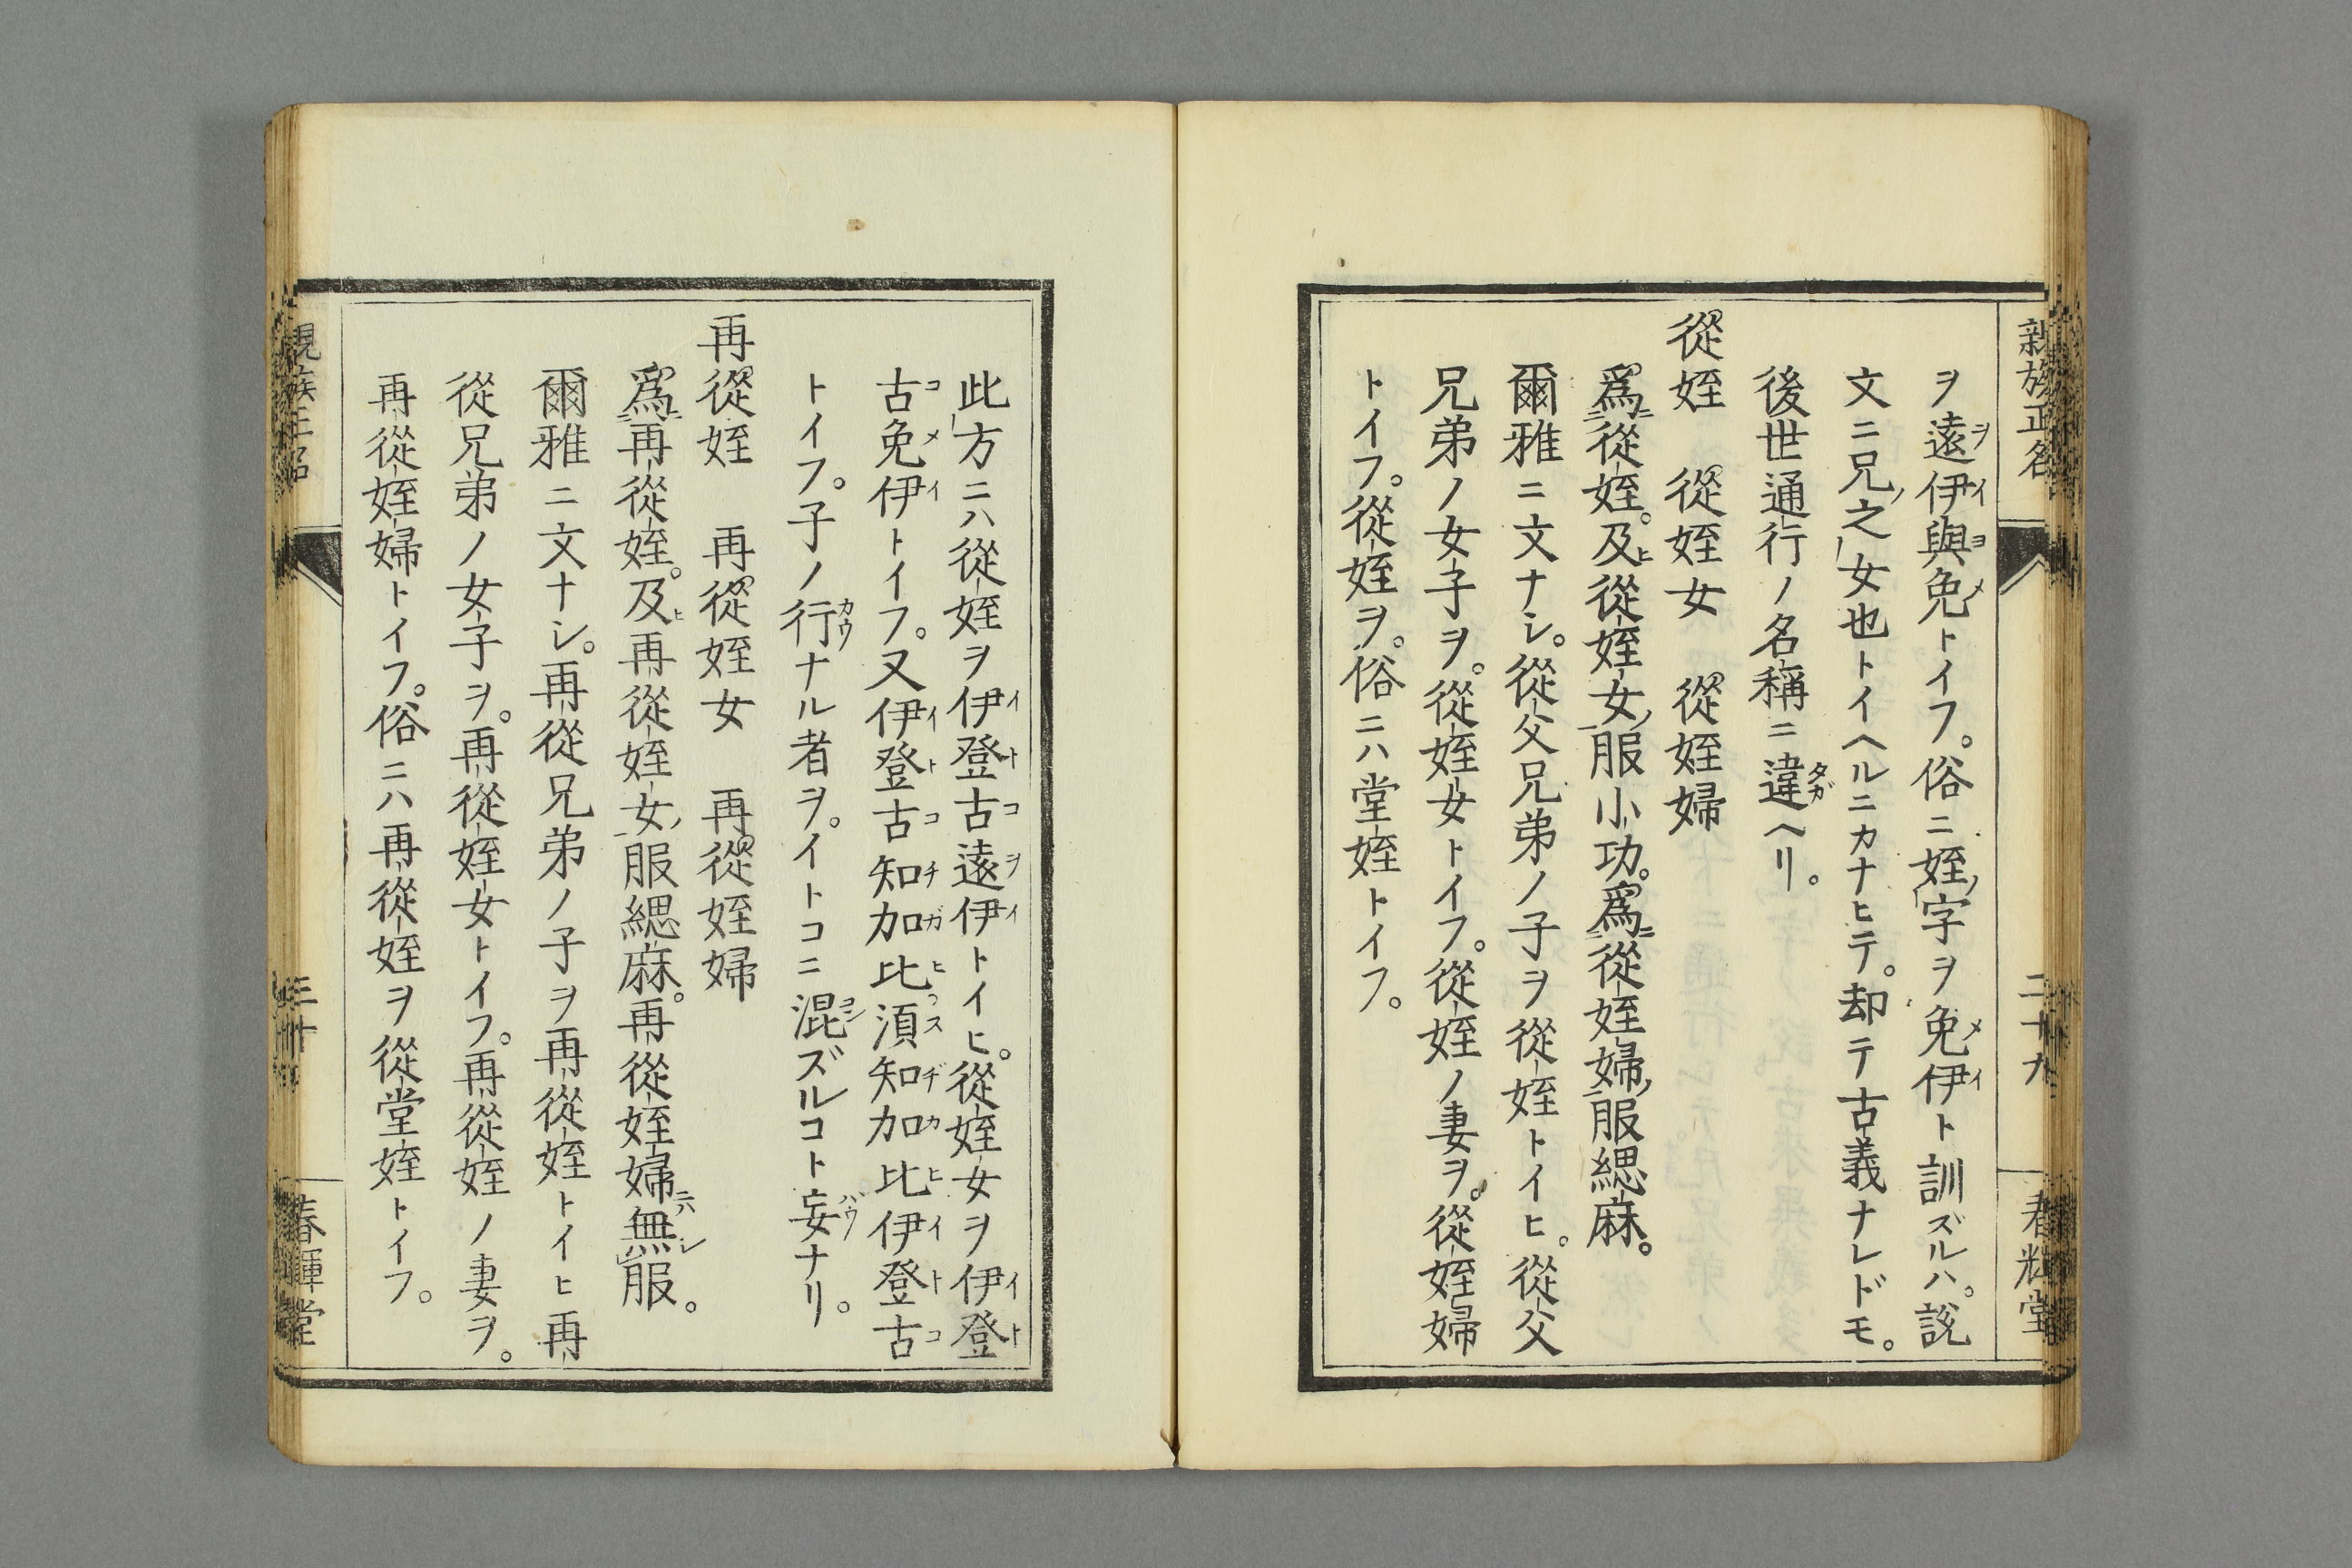 親族正名
二十九
春輝堂
ヲ遠伊與免トイフ。俗ニ姪ノ字ヲ免伊ト訓ズルハ。説
文ニ兄ノ之女也トイヘルニカナヒテ。却テ古義ナレドモ。
後世通行ノ名稱ニ違ヘリ。
從姪　從姪女　從姪婦
爲從姪。及從姪女ノ服小功。爲從姪婦ノ服緦麻。
爾雅ニ文ナシ。從父兄弟ノ子ヲ從姪トイヒ。從父
兄弟ノ女子ヲ。從姪女トイフ。從姪ノ妻ヲ。從姪婦
トイフ。從姪ヲ。俗ニハ堂姪トイフ。
此方ニハ從姪ヲ伊登古遠伊トイヒ。從姪女ヲ伊登
古免伊トイフ。又伊登古知加比須知加比伊登古
トイフ。子ノ行ナル者ヲ。イトコニ混ズルコト妄ナリ。
再從姪　再從姪女　再從姪婦
爲再從姪。及再從姪女ノ服緦麻。再從姪婦ニハ無服。
爾雅ニ文ナシ。再從兄弟ノ子ヲ再從姪トイヒ再
從兄弟ノ女子ヲ。再從姪女トイフ。再從姪ノ妻ヲ。
再從姪婦トイフ。俗ニハ再從姪ヲ從堂姪トイフ。
親族正名
三十
春輝堂